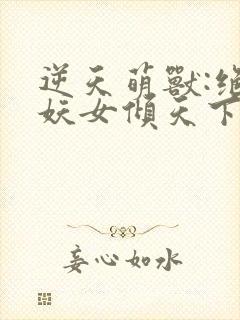 逆天萌獸:絕
妖女傾天下
妾心如水